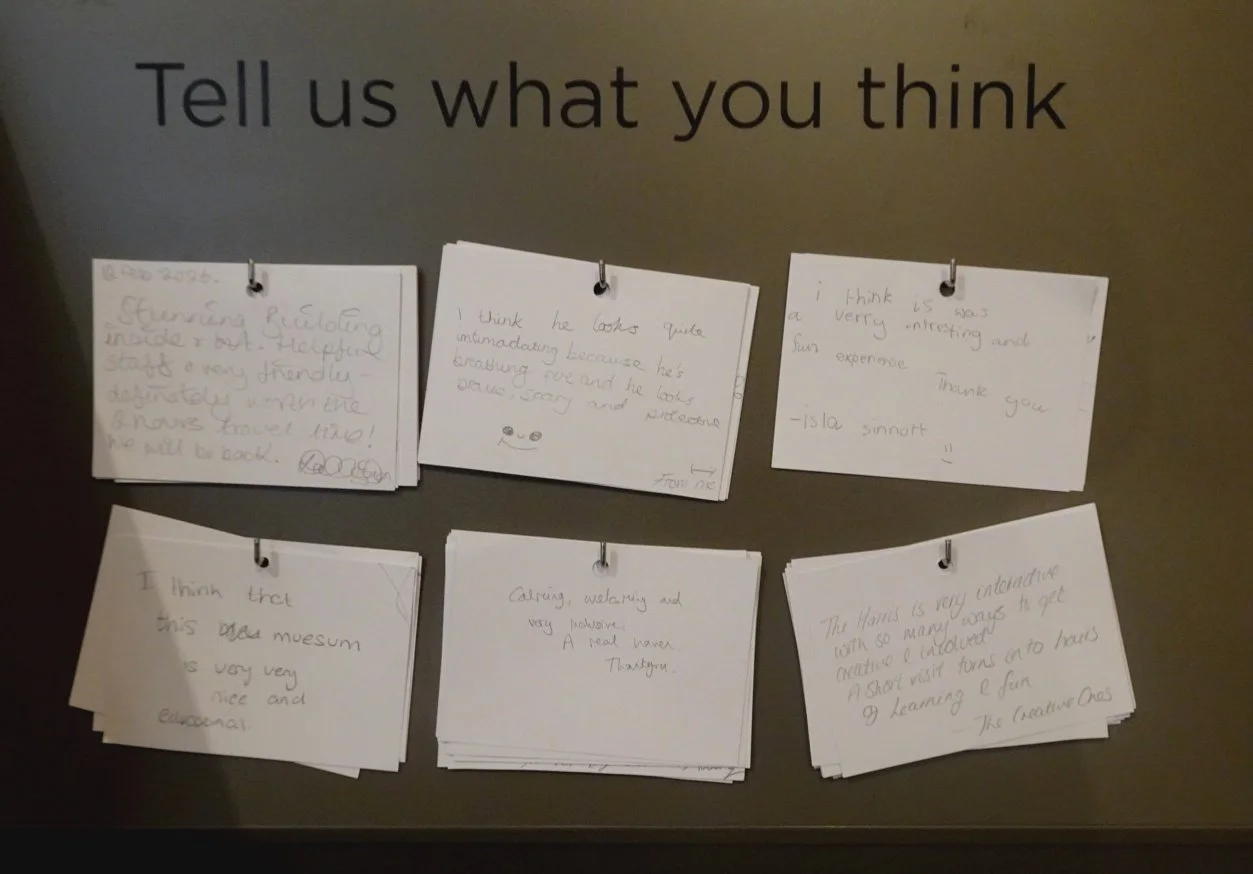 Tell us what you think
12 Feb 2026.
Stunning Building
inside & out. Helpful
staff & very friendly -
definately worth the
2 hours travel time!
We will be back.
I think he looks quite
intimadating because he's
breathing fire and he looks
scary and
From me
i think is was
a verry intresting and
fun experience
Thank you
-isla sinnott
I think that
this muesum
is very very
nice and
Calming, welcoming and
very inclusive.
A real haven.
Thankyou.
The Harris is very interactive
with so many ways to get
creative & involved
A short visit turns into hours
of Learning & fun
- The Creative Ones